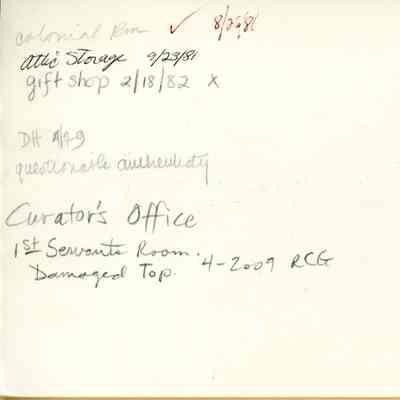 colonial Rm ✓ 8/26/81
Attic Storage 9/23/81
gift shop 2/18/82 x
DH 9/79
questionable authenticity
Curator's Office
1st Servants Room.
Damaged Top. 4-2009 RCG